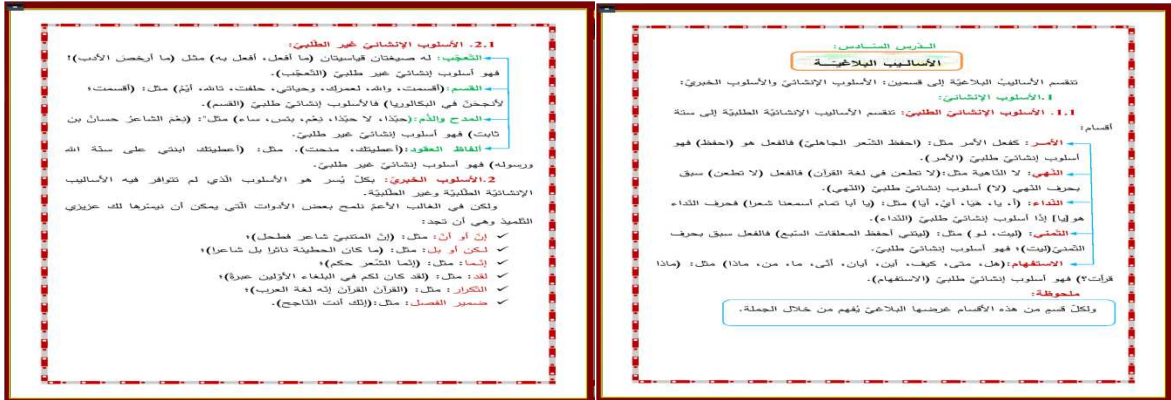 الـدرس السـادس:
الأساليب البلاغيـة
تنقسم الأساليبُ البلاغيّة إلى قسمين: الأسلوب الإنشائيّ والأسلوب الخبريّ:
1.الأسلوب الإنشائيّ:
1.1. الأسلوب الإنشائيّ الطلبيّ: تنقسم الأساليب الإنشائيّة الطلبيّة إلى ستة
أقسام:
الأمـر: كفعل الأمر مثل: (احفظ الشّعر الجاهليّ) فالفعل هو (احفظ) فهو
أسلوب إنشائيّ طلبيّ (الأمر).
النّهي: لا النّاهية مثل:(لا تطعن في لغة القرآن) فالفعل (لا تطعن) سبق
بحرف النّهي (لا) أسلوب إنشائيّ طلبيّ (النّهي).
النّداء: (أ، يا، هيَا، أيْ، أيَا) مثل: (يا أبا تمام أسمعنا شعرا) فحرف النّداء
هو[يا] إذًا أسلوب إنشائيّ طلبيّ (النّداء).
التّمني: (ليت، لـو) مثل: (ليتني أحفظ المعلقات السّبع) فالفعل سبق بحرف
التّمنيّ(ليت)؛ فهو أسلوب إنشائيّ طلبيّ.
الاستفهام:(هل، متى، كيف، أين، أيان، أنّى، ما، من، ماذا) مثل: (ماذا
قرأت؟) فهو أسلوب إنشائيّ طلبيّ (الاستفهام).
ملحوظة:
ولكلّ قسمٍ من هذه الأقسام غرضها البلاغيّ يُفهم من خلال الجملة.
2.1. الأسلوب الإنشائيّ غير الطّلبيّ:
التّعجّب: له صيغتان قياسيتان (ما أفعل، أفعل به) مثل (ما أرخصَ الأدب)!
فهو أسلوب إنشائيّ غير طلبيّ (التّعجّب).
القسم:(أقسمت، والله، لعمرك، وحياتي، حلفت، تالله، أيْمُ) مثل: (أقسمت؛
لأنجحنّ في البكالوريا) فالأسلوب إنشائيّ طلبيّ (القسم).
المدح والذّم:(حبّذا، لا حبّذا، نِعْم، بئس، ساء) مثل": (نِعْمَ الشاعرُ حسانُ بن
ثابت) فهو أسلوب إنشائيّ غير طلبيّ.
ألفاظ العقود:(أعطيتك، منحت). مثل: (أعطيتك ابنتي على سنّة الله
ورسوله) فهو أسلوب إنشائيّ غير طلبيّ.
2.الأسلوب الخبريّ: بكلّ يُسر هو الأسلوب الّذي لم تتوافر فيه الأساليب
الإنشائيّة الطّلبيّة وغير الطّلبيّة.
ولكن في الغالب الأعمّ نلمح بعض الأدوات الّتي يمكن أن نيسّرها لك عزيزي
التّلميذ وهي أن تجد:
✓ إنّ أو أنّ: مثل: (إنّ المتنبيّ شاعر فطحل)؛
✓ لـكن أو بل: مثل: (ما كان الحطيئة ناثرا بل شاعرا)؛
✓ إنّـما: مثل: (إنّما الشّعر حكم)؛
✓ لقد: مثل: (لقد كان لكم في البلغاء الأوّلين عبرة)؛
✓ التّكرار: مثل: (القرآن القرآن إنّه لغة العرب)؛
✓ ضمير الفصل: مثل:(إنّك أنت النّاجح).